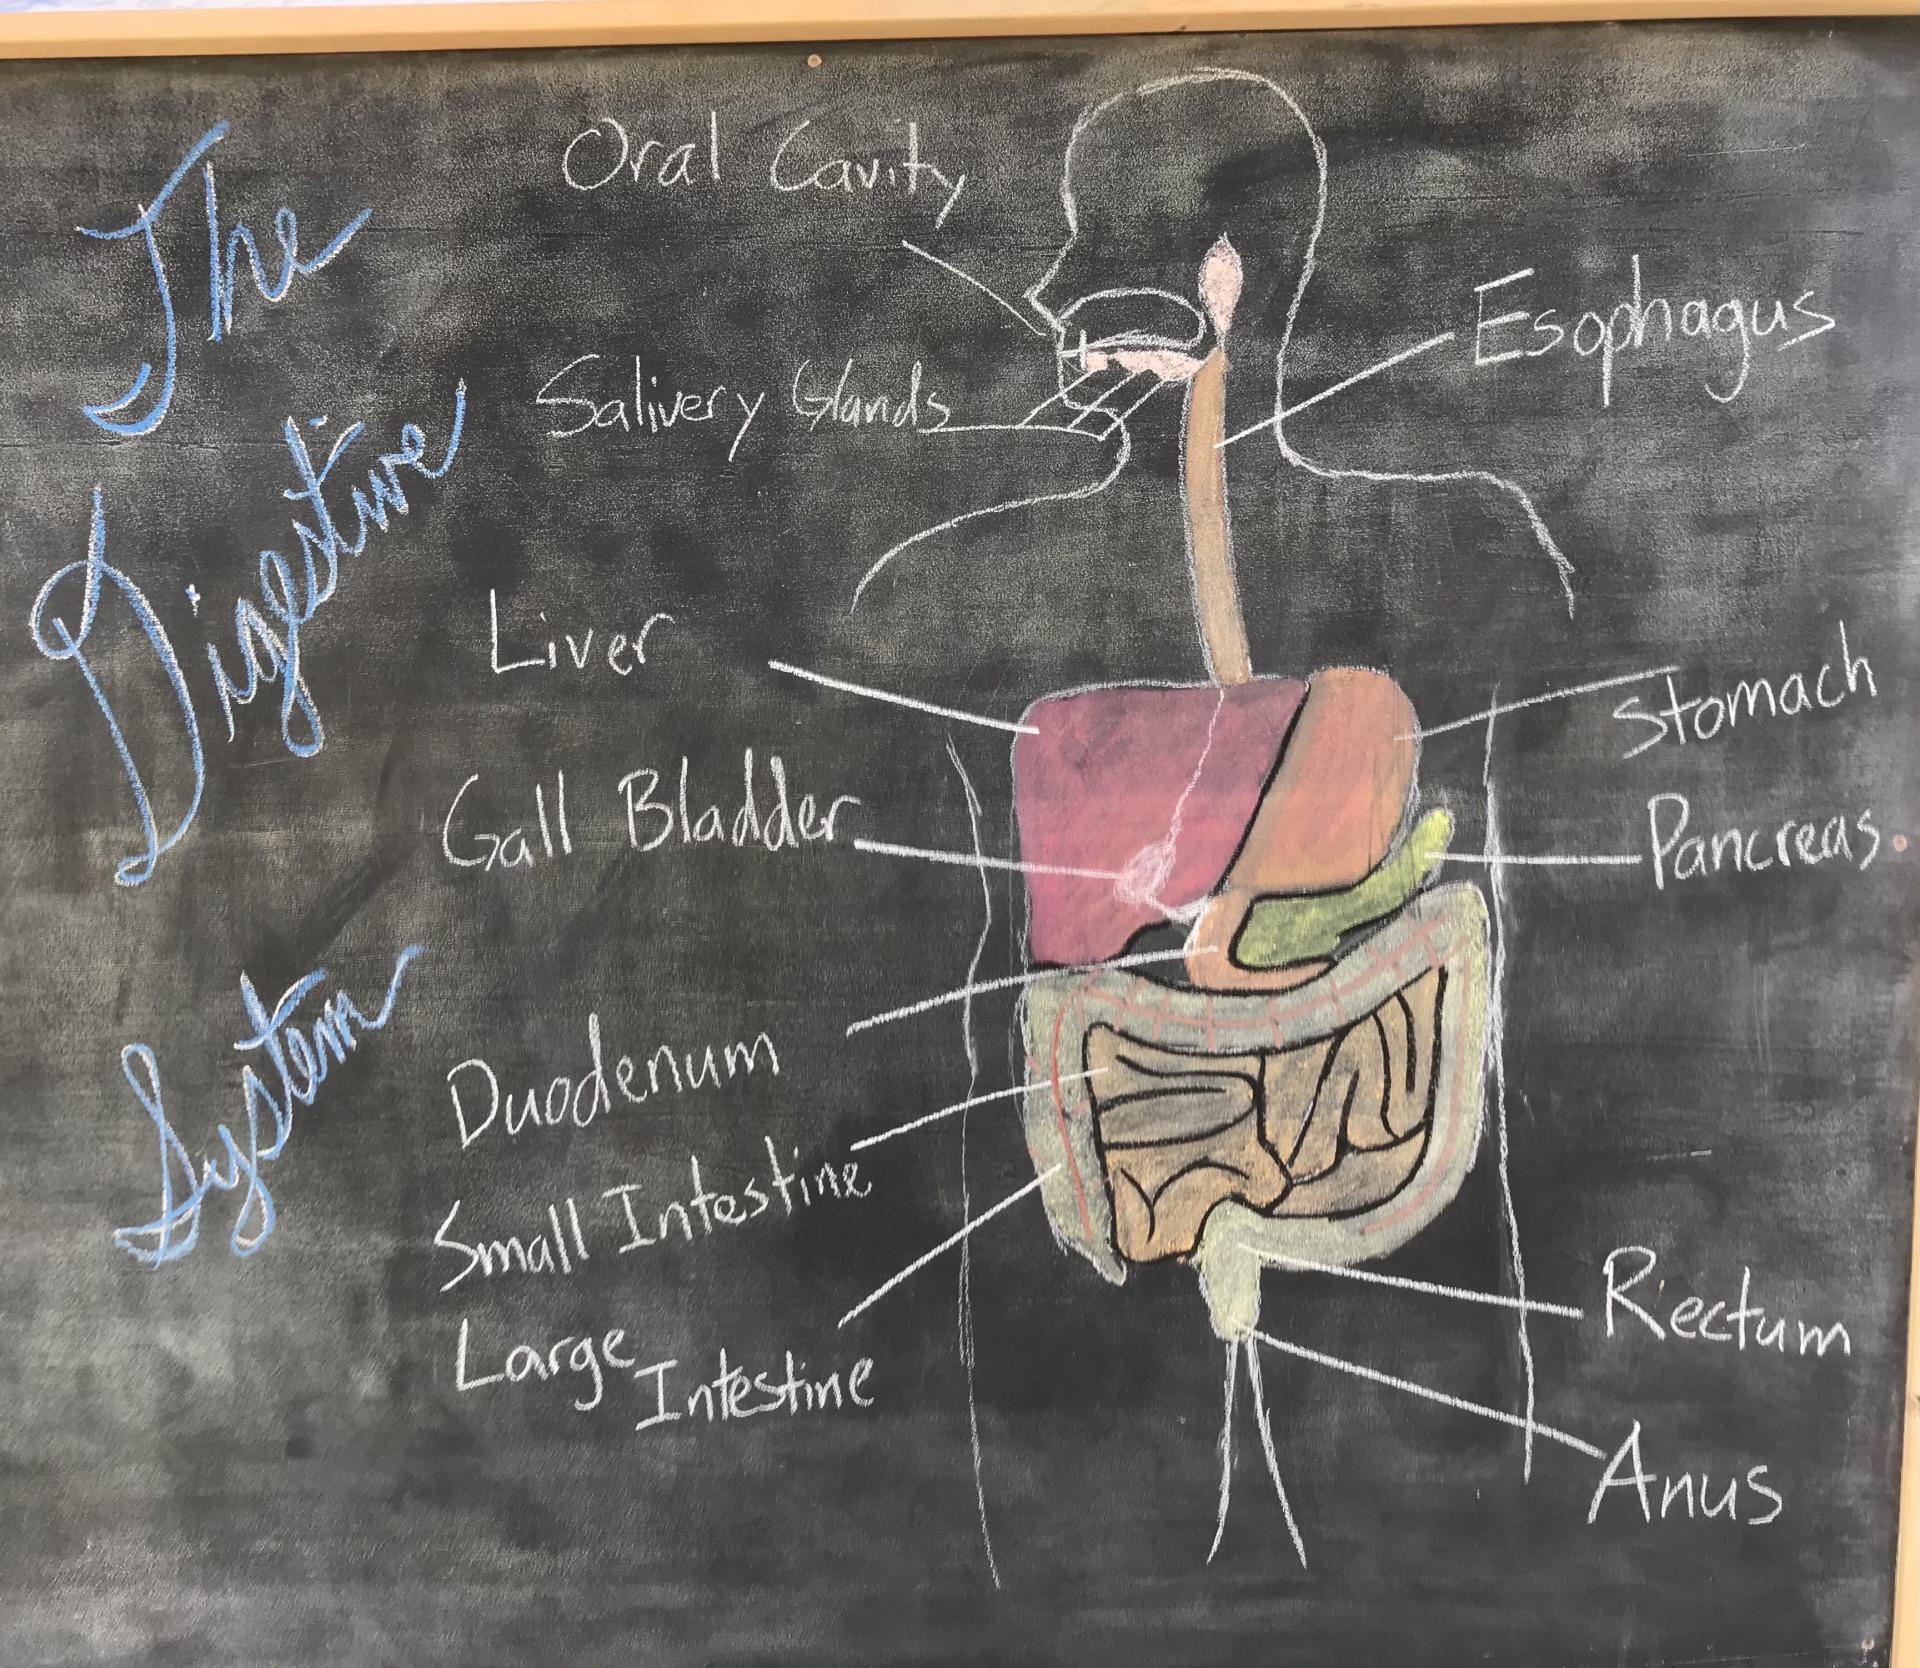 The
Digestive
System
Oral Cavity
Salivery Glands
Liver
Gall Bladder
Duodenum
Small Intestine
Large
Intestine
Esophagus
Stomach
Pancreas
Rectum
Anus